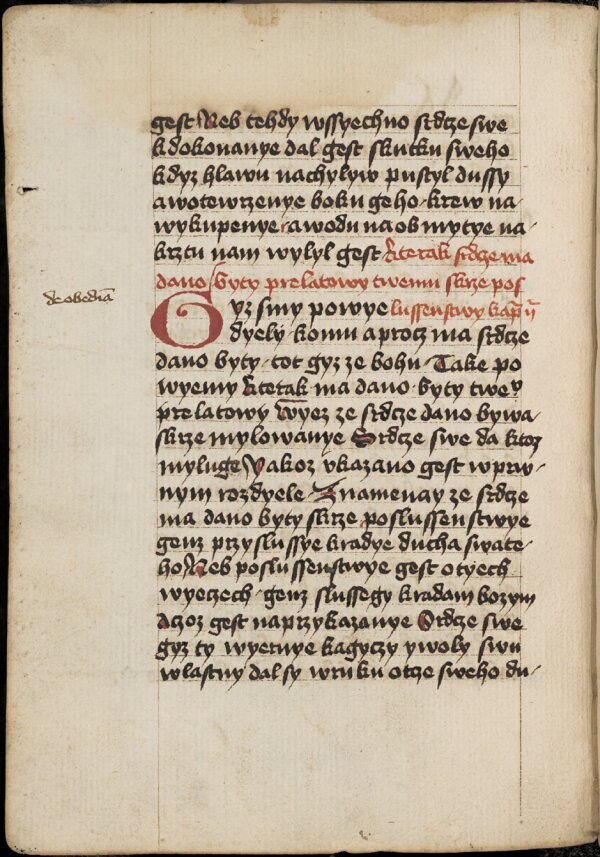 gest Neb tehdy wssyechno srdcze swe
k dokonanye dal gest skutku sweho
kdyz hlawu nachylyw pustyl dussy
a wotewrzenye boku geho krew na
wykupenye a wodu na obmytye na
krztu nam wylyl gest kterak srdcze ma
dano byty prelatowy twemu skrze pos
lussenstwy kap
de obedia
Gyz smy powye
dyely komu a procz ma srdcze
dano byty tot gyz ze bohu Take po
wyemy kterak ma dano byty twe
prelatowy Wyez ze srdcze dano bywa
skrze mylowanye Srdcze swe da ktoz
myluge Yakoz vkazano gest w prw
nym rozdyele Znamenay ze srdcze
ma dano byty skrze poslussenstwye
genz przyslussye k radye ducha swate
ho Neb poslussenstwye gest o tyech
wyeczech genz slussegy k radam bozym
a czoz gest na przykazanye Srdcze swe
gyz ty wyernye kagyczy y woly swu
wlastny dal sy w ruku otcze sweho du